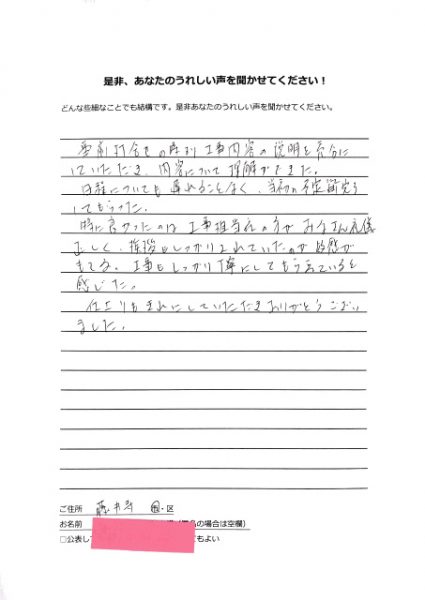 是非、あなたのうれしい声を聞かせてください！
どんな些細なことでも結構です。是非あなたのうれしい声を聞かせてください。
事前打合せの時から工事内容の説明を充分に
していただき、内容について理解ができました。
日程についても遅れることなく、当初の予定通り
してもらった。
特に良かったのは工事担当者の方がみなさん礼儀
正しく、挨拶もしっかりされていたのが好感が
もてる。工事もしっかり丁寧にしてもらっていると
感じた。
仕上りもきれいにしていただきありがとうござい
ました。
ご住所 藤井寺 市・区
お名前 の場合は空欄）
□公表し もよい